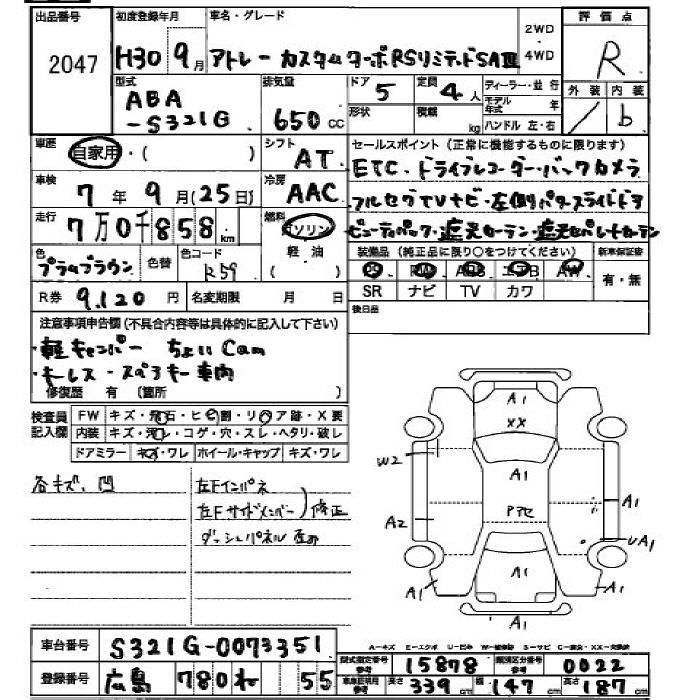 出品番号 初度登録年月 車名・グレード 2WD 評価点
2047 H30 9月 アトレー カスタムターボRSリミテッドSAⅢ 4WD R
型式 排気量 ドア 定員 ディーラー・並行 外装 内装
ABA 5 4人 モデル年式 年
-S321G 650cc 形状 積載 kg ハンドル 左・右 / b
車歴 シフト セールスポイント(正常に機能するものに限ります)
自家用・( ) AT ETC・ドライブレコーダー・バックカメラ
車検 冷房
7年9月(25日) AAC フルセグTVナビ・左側パワースライドドア
走行 燃料
7万0千858km ガソリン ビューティパック・遮光カーテン・遮光セパレートカーテン
色 色替 色コード 軽油 装備品(純正品に限り〇をつけてください) 新車保証書
プラムブラウン R59 ( ) PS PW ABS エアB AW 有・無
R券 9,120円 名変期限 月 日 SR ナビ TV カワ
注意事項申告欄(不具合内容等は具体的に記入して下さい) 後日品
・軽キャンパー ちょいCam
・キーレス・スペアキー車内
修復歴 有(箇所 )
検査員 FW キズ・飛石・ヒビ割・リペア跡・X要
記入欄 内装 キズ・汚レ・コゲ・穴・スレ・ヘタリ・破レ
ドアミラー キズ・ワレ ホイール・キャップ キズ・ワレ
A1
XX
W2
A1
A2
Pアセ
A1
UA1
A1
A1
A1
各キズ、凹 左Fインパネ
左Fサイドメンバー 修正
ダッシュパネル
A−キズ E−エクボ U−凹み W−補修跡 S−サビ C−腐食・XX−交換済
車台番号 S321G-0073351
型式指定番号 15878 類別区分番号 0022
登録番号 広島 780 わ 55
車体証明用参考 長さ 339cm 幅 147cm 高さ 187cm